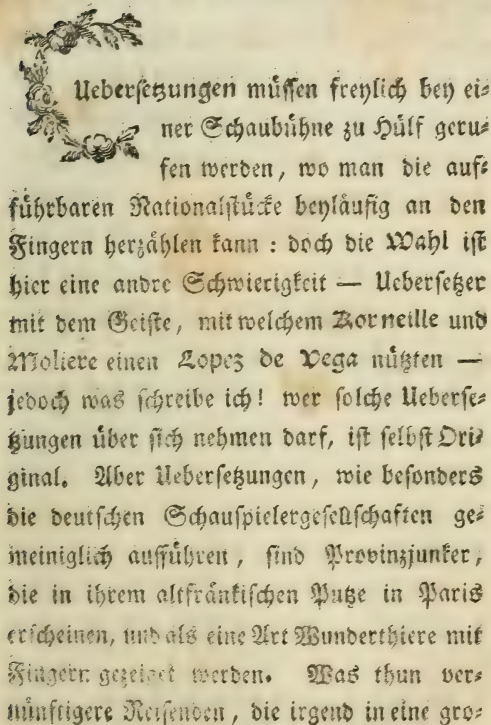 Uebersetzungen müssen freylich bey ei⸗
ner Schaubühne zu Hülf geru⸗
fen werden, wo man die auf⸗
führbaren Nationalstücke beyläufig an den
Fingern herzählen kann : doch die Wahl ist
hier eine andre Schwierigkeit — Uebersetzer
mit dem Geiste, mit welchem Korneille und
Moliere einen Lopez de Vega nützten —
jedoch was schreibe ich! wer solche Ueberse⸗
tzungen über sich nehmen darf, ist selbst Ori⸗
ginal. Aber Uebersetzungen, wie besonders
die deutschen Schauspielergesellschaften ge⸗
meiniglich aufführen, sind Provinzjunker,
die in ihrem altfränkischen Putze in Paris
erscheinen, und als eine Art Wunderthiere mit
Fingern gezeiget werden. Was thun ver⸗
nünftigere Reisenden, die irgend in eine gro⸗